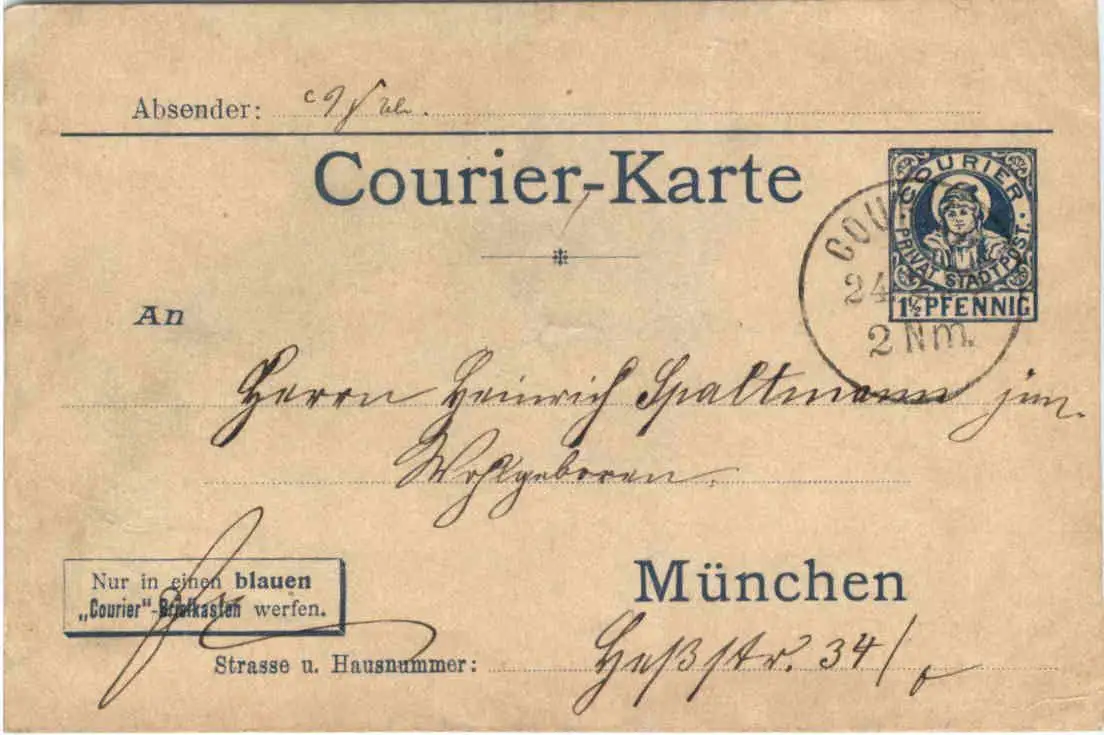 Absender:
Courier-Karte
COURIER
PRIVAT STADTPOST.
1½ PFENNIG
COU
24
2 Nm.
An
Herrn Heinrich Spaltmann jun.
Wohlgeboren.
Nur in einen blauen
„Courier"-Briefkasten werfen.
München
Strasse u. Hausnummer: Heßstr. 34/